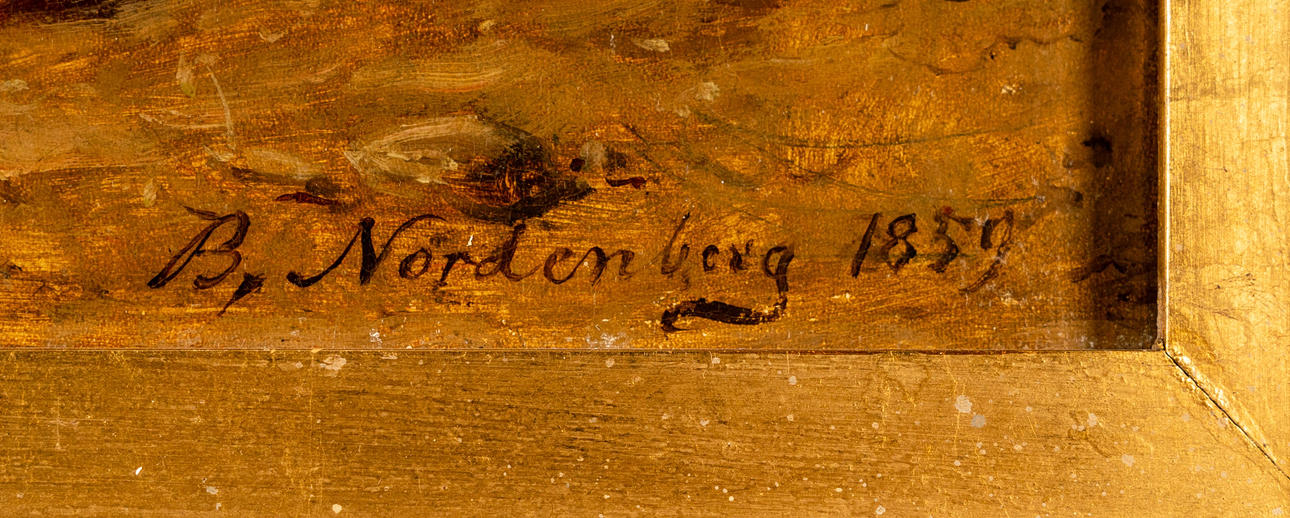 B, Nordenberg 1859